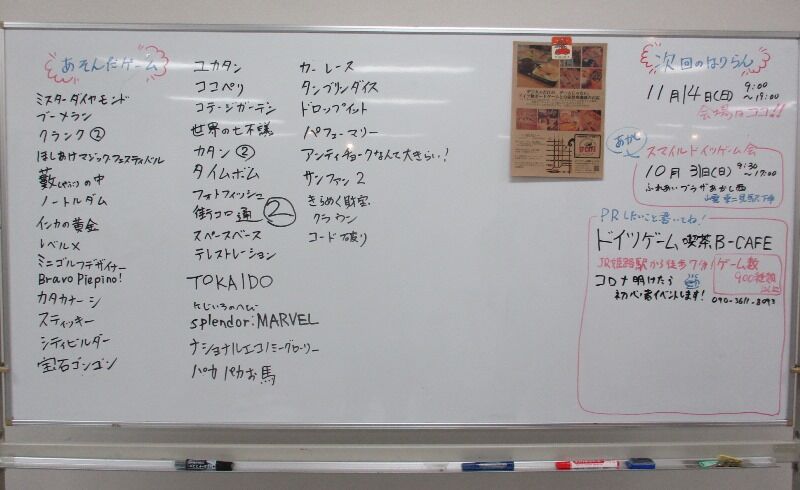 あそんだゲーム
ミスターダイヤモンド
ブーメラン
クランク②
ほしあけマジックフェスティバル
藪の中
ノートルダム
インカの黄金
レベルX
ミニゴルフデザイナー
Bravo Piepino!
カタカナーシ
スティッキー
シティビルダー
宝石ゴンゴン
ユカタン
ココペリ
コテージガーデン
世界の七不議
カタン②
タイムボム
フォトフィッシュ
街コロ通②
スペースベース
テレストレーション
TOKAIDO
にじいろのへび
splendor:MARVEL
ナショナルエコノミーグローリー
パカパカお馬
カーレース
タンブリンダイス
ドロップイット
パフューマリー
アンティチョークなんて大きらい!
サンファン2
きらめく財宝
クラウン
コード破り
次回のはりらん
11月14日(日) 9:00
～19:00
会場はココ!!
あかし
スマイルドイツゲーム会
10月31日(日) 9:30
～17:00
ふれあいプラザあかし西
山電 東二見駅下車
PRしたいこと書いてね!
ドイツゲーム喫茶B-CAFE
JR姫路駅から徒歩7分!
ゲーム数
900種類
コロナ明けたら
初心者イベントします!
090-3611-8093